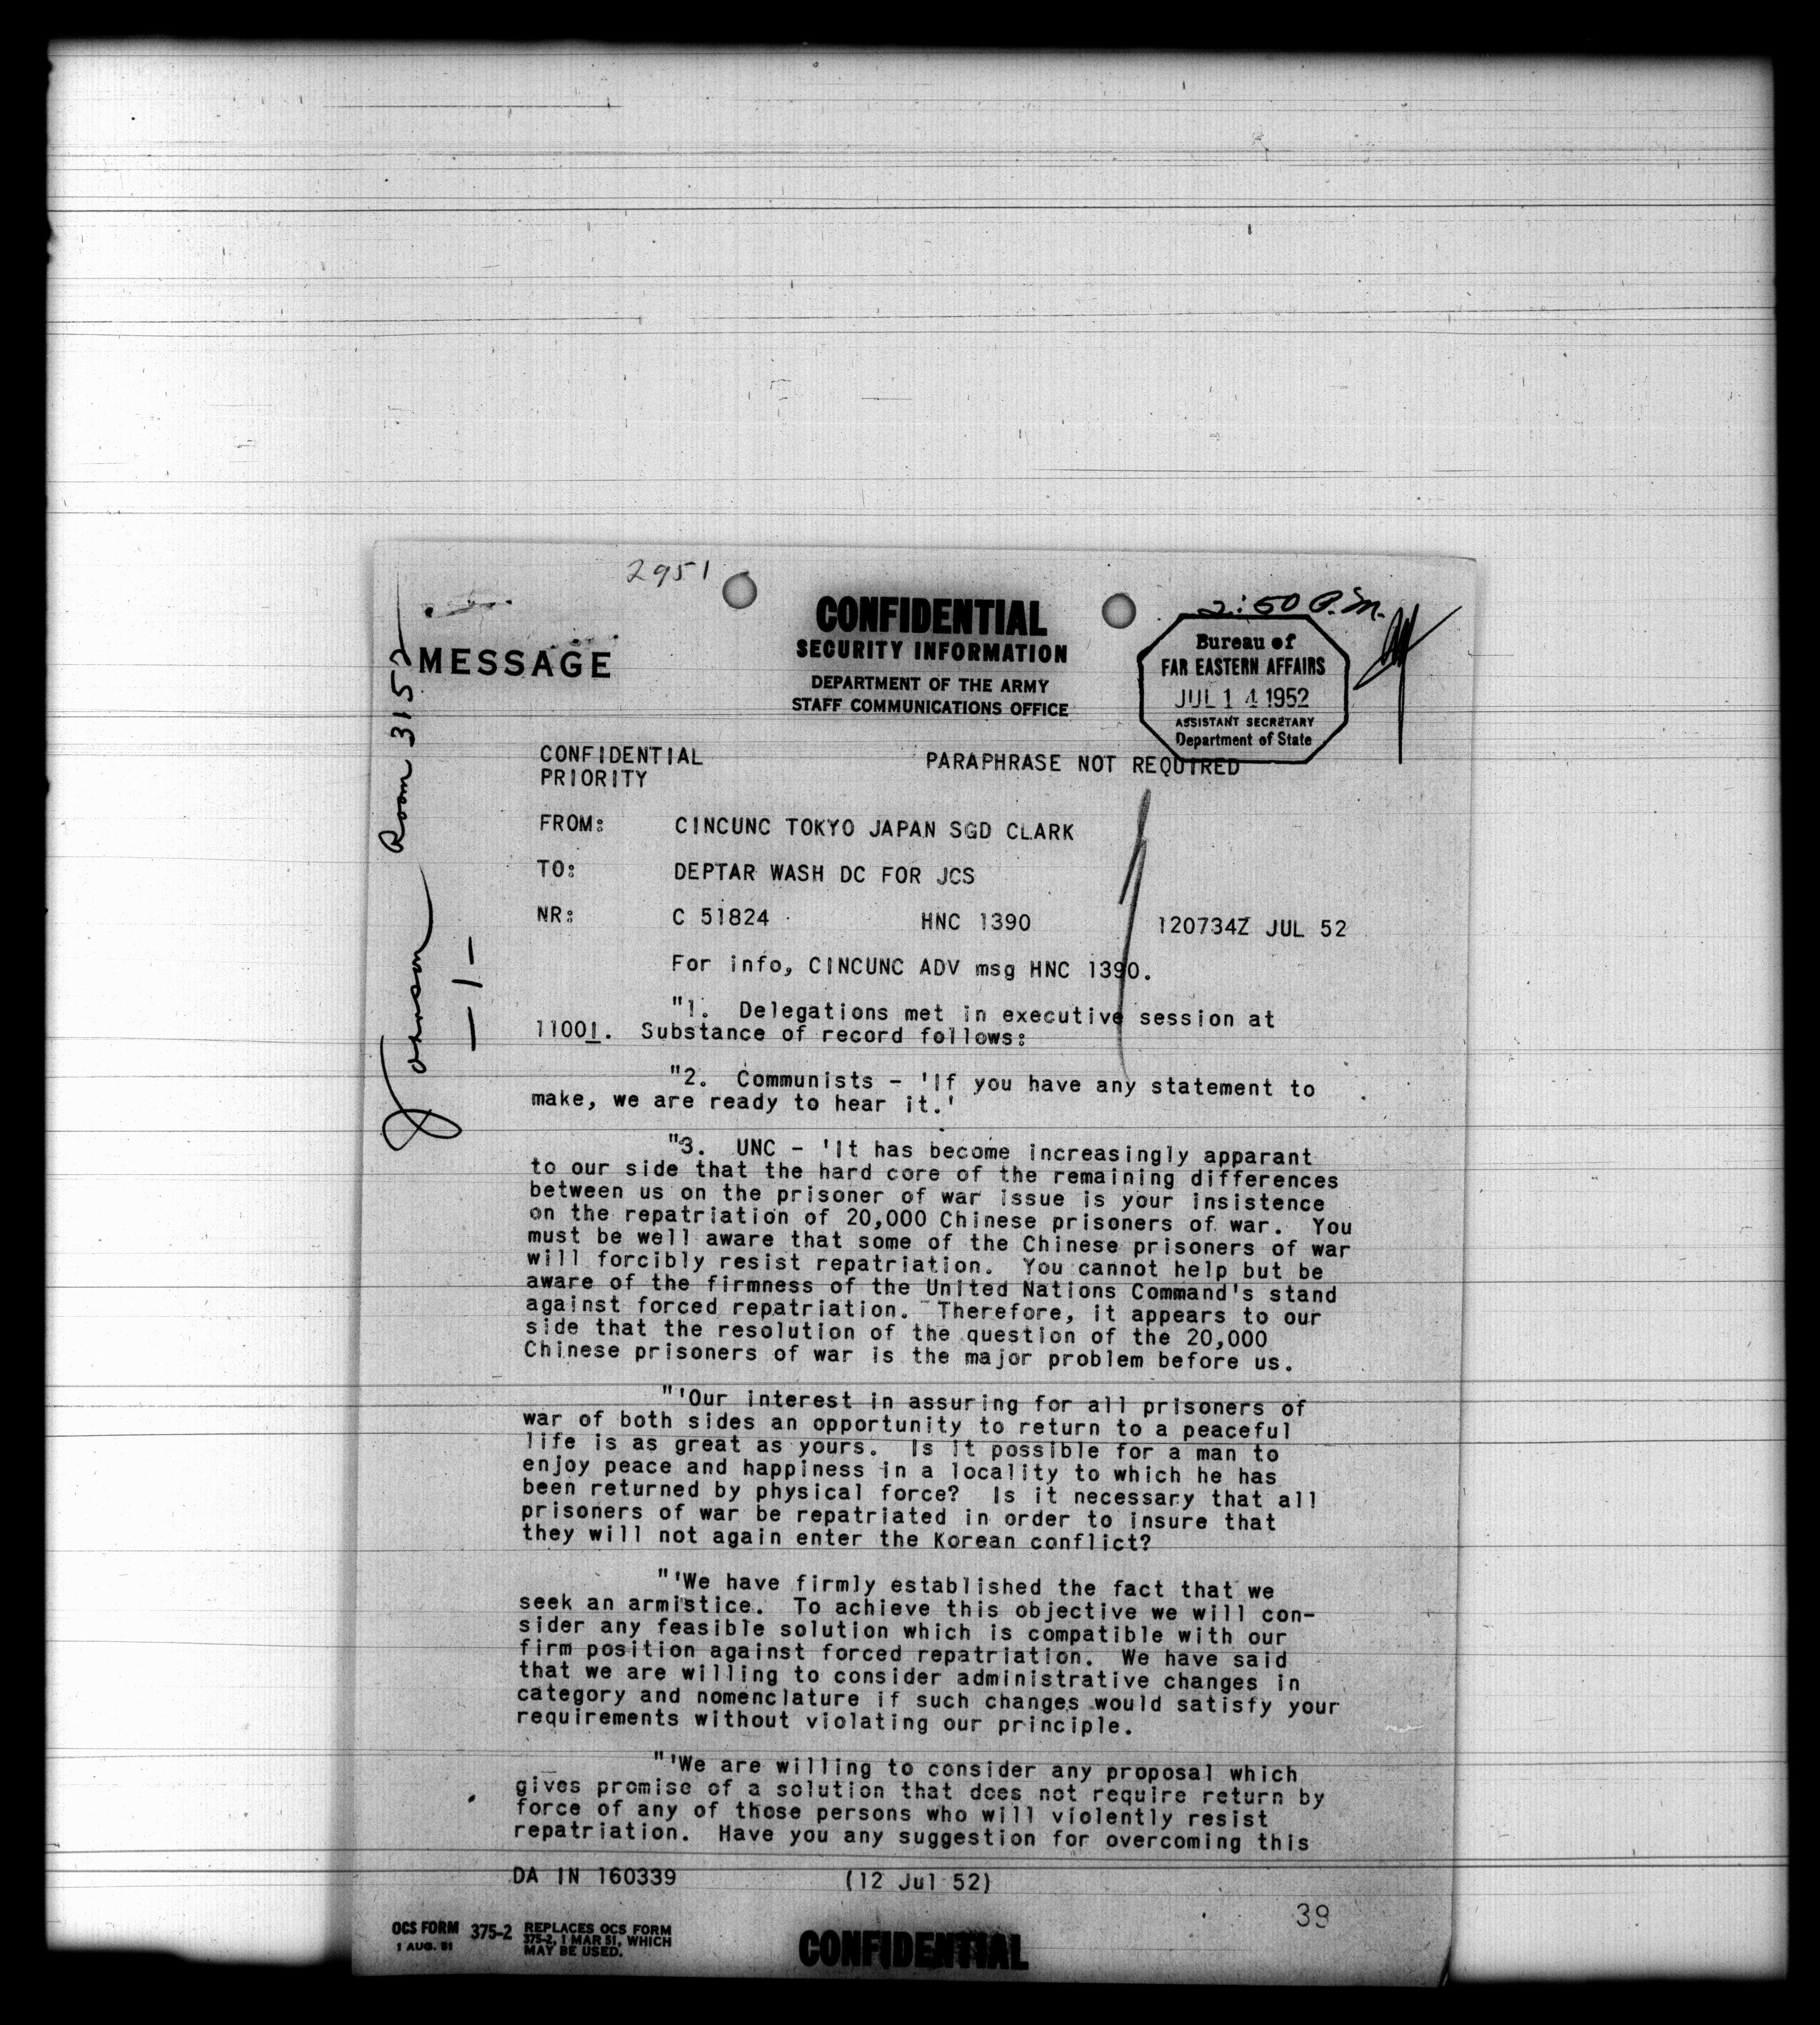 2951
CONFIDENTIAL
SECURITY INFORMATION
DEPARTMENT OF THE ARMY
STAFF COMMUNICATIONS OFFICE
MESSAGE
2:50 P.M.
Bureau of
FAR EASTERN AFFAIRS
JUL 14 1952
ASSISTANT SECRETARY
Department of State
Johnson Room 3152
-1-
CONFIDENTIAL PARAPHRASE NOT REQUIRED
PRIORITY
FROM: CINCUNC TOKYO JAPAN SGD CLARK
TO: DEPTAR WASH DC FOR JCS
NR: C 51824 HNC 1390 120734Z JUL 52
For info, CINCUNC ADV msg HNC 1390.
"1. Delegations met in executive session at
1100I. Substance of record follows:
"2. Communists - 'If you have any statement to
make, we are ready to hear it.'
"3. UNC - 'It has become increasingly apparant
to our side that the hard core of the remaining differences
between us on the prisoner of war issue is your insistence
on the repatriation of 20,000 Chinese prisoners of war. You
must be well aware that some of the Chinese prisoners of war
will forcibly resist repatriation. You cannot help but be
aware of the firmness of the United Nations Command's stand
against forced repatriation. Therefore, it appears to our
side that the resolution of the question of the 20,000
Chinese prisoners of war is the major problem before us.
"'Our interest in assuring for all prisoners of
war of both sides an opportunity to return to a peaceful
life is as great as yours. Is it possible for a man to
enjoy peace and happiness in a locality to which he has
been returned by physical force? Is it necessary that all
prisoners of war be repatriated in order to insure that
they will not again enter the Korean conflict?
"'We have firmly established the fact that we
seek an armistice. To achieve this objective we will con-
sider any feasible solution which is compatible with our
firm position against forced repatriation. We have said
that we are willing to consider administrative changes in
category and nomenclature if such changes would satisfy your
requirements without violating our principle.
"'We are willing to consider any proposal which
gives promise of a solution that does not require return by
force of any of those persons who will violently resist
repatriation. Have you any suggestion for overcoming this
DA IN 160339 (12 Jul 52)
39
OCS FORM 375-2 REPLACES OCS FORM
1 AUG. 51 375-2, 1 MAR 51, WHICH
MAY BE USED.
CONFIDENTIAL